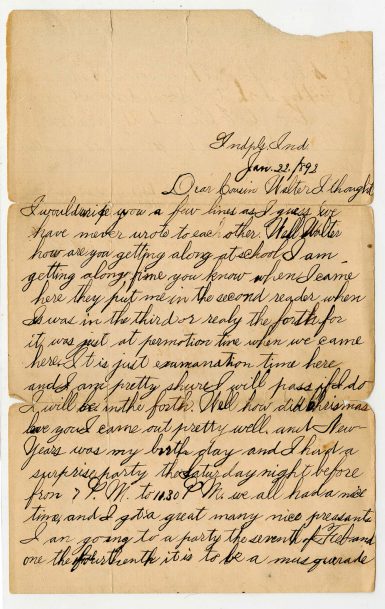 Indpls, Ind.
Jan. 22, 1892
Dear Cousin Walter I thought
I would write you a few lines as I guess we
have never wrote to eac other. Well Walter
how are you getting along at school. I am
getting along fine you know when I came
here they put me in the second reader when
I was in the third or realy the forth for
it was just at permotion time when we came
here. It is just examanation time here
and I am pretty shure I will pass if I do
I will be in the forth. Well how did Chrismas
you I came out pretty well. and New
Years was my birth day and I had a
surprise party the Saturday night before
from 7 P.M. to 10.30 P.M. we all had a nice
time, and I got a great many nice preasants
I am going to a party the seventh of Feb and
one the fourthenth it is to be a musqurade